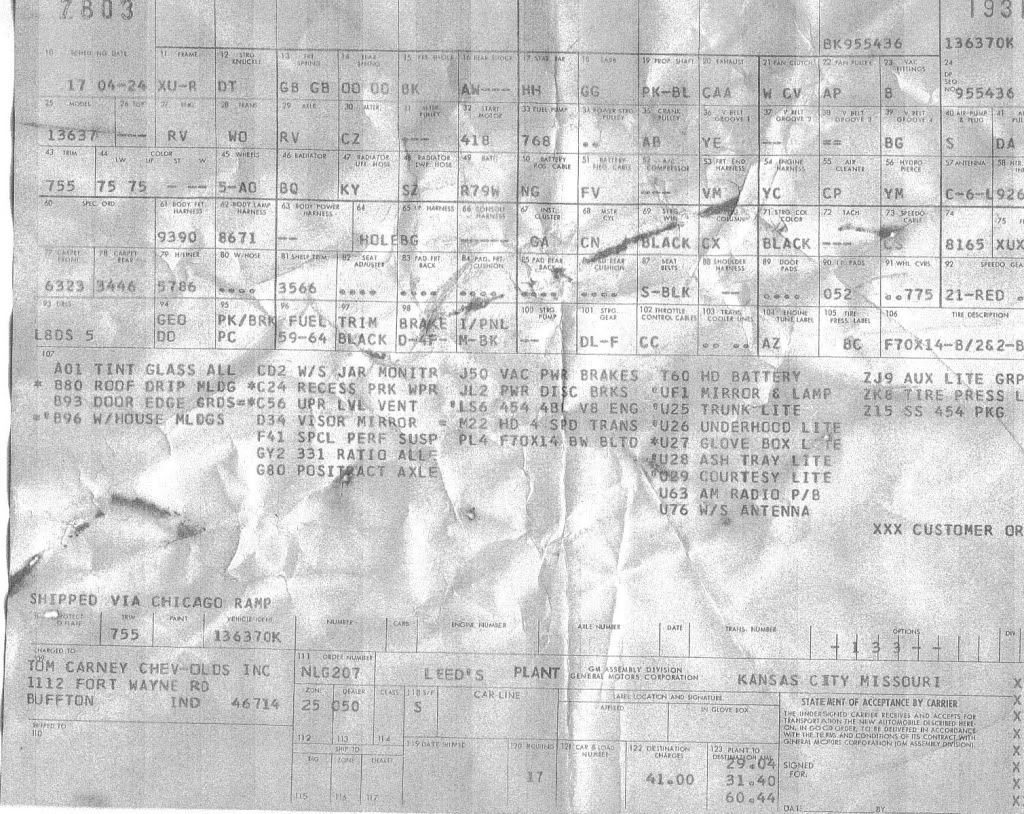 7803 193
BK955436 136370K
10 SCHED. NO. DATE 11 FRAME 12 STRG KNUCKLE 13 FRT SPRING 14 REAR SPRING 17 STAB BAR 19 PROP SHAFT 20 EXHAUST 21 FAN CLUTCH 22 FAN PULLEY 23 VAC FITTINGS 24
17 04-24 XU-R DT GB GB OO OO BK AW--- HH GG PK-BL CAA W GV AP 8 955436
25 MODEL 28 TRANS 29 AXLE 30 ALTER 32 START MOTOR 33 FUEL PUMP 35 CRANK PULLEY
13637 --- RV WO RV CZ --- 418 768 .. AB YE -- -- BG S DA
43 TRIM 44 COLOR LW UP ST W 45 WHEELS 46 RADIATOR 47 RADIATOR UPR. HOSE 48 RADIATOR LWR. HOSE 49 BATT 50 BATTERY POS. CABLE 51 BATTERY NEG. CABLE 53 FRT END HARNESS 54 ENGINE HARNESS 55 AIR CLEANER 56 HYDRO PIERCE 57 ANTENNA
755 75 75 - -- 5-AO BQ KY SZ R79W NG FV ---- VM YC CP YM C-6-L926
60 SPEC. ORD 61 BODY FRT. HARNESS 62 BODY LAMP HARNESS 63 BODY POWER HARNESS 64 65 I.P. HARNESS 66 CONSOLE HARNESS 67 INST. CLUSTER 68 MSTR CYL 71 STRG COL COLOR 72 TACH 73 SPEEDO CABLE 74 75
9390 8671 -- HOLEBG ----- GA CN BLACK CX BLACK -- CS 8165 XUX
77 CARPET FRONT 78 CARPET REAR 79 H/LINER 80 W/HOSE 81 SHELF TRIM 82 SEAT ADJUSTER 83 PAD FRT. BACK 84 PAD. FRT. CUSHION 85 PAD REAR BACK 87 SEAT BELTS 88 SHOULDER HARNESS 89 DOOR PADS 90 I.P. PADS 91 WHL CVRS. 92 SPEEDO GEA
6323 3446 5786 .... 3566 .... .... .... .... .... S-BLK -- .... 052 ..775 21-RED .
94 95 96 97 98 100 STRG. PUMP 101 STRG. GEAR 102 THROTTLE CONTROL CABLE 103 TRANS. COOLER LINES 104 ENGINE TUNE LABEL 105 TIRE PRESS. LABEL 106 TIRE DESCRIPTION
GEO PK/BRK FUEL TRIM BRAKE I/PNL
LBDS 5 DO PC 59-64 BLACK D-4F- M-BK -- DL-F CC .. .. AZ BC F70X14-B/2&2-B
107
A01 TINT GLASS ALL CD2 W/S JAR MONITR J50 VAC PWR BRAKES T60 HD BATTERY ZJ9 AUX LITE GRP
* B80 ROOF DRIP MLDG *C24 RECESS PRK WPR JL2 PWR DISC BRKS *UF1 MIRROR & LAMP ZK8 TIRE PRESS L
* B93 DOOR EDGE GRDS**C56 UPR LVL VENT *LS6 454 4BL V8 ENG *U25 TRUNK LITE Z15 SS 454 PKG
**B96 W/HOUSE MLDGS D34 VISOR MIRROR * M22 HD 4 SPD TRANS *U26 UNDERHOOD LITE
F41 SPCL PERF SUSP PL4 F70X14 BW BLTD *U27 GLOVE BOX LITE
GY2 331 RATIO AXLE *U28 ASH TRAY LITE
G80 POSITRACT AXLE *U29 COURTESY LITE
U63 AM RADIO P/B
U76 W/S ANTENNA
XXX CUSTOMER OR
SHIPPED VIA CHICAGO RAMP
TRIM PAINT VEHICLE IDENT. NUMBER CARB ENGINE NUMBER AXLE NUMBER DATE TRANS. NUMBER OPTIONS DIV
755 136370K 13--
CHARGED TO
TOM CARNEY CHEV-OLDS INC
1112 FORT WAYNE RD
BUFFTON IND 46714
SHIPPED TO
110
111 ORDER NUMBER
NLG207 LEED'S PLANT GM ASSEMBLY DIVISION GENERAL MOTORS CORPORATION KANSAS CITY MISSOURI X
ZONE DEALER CLASS CAR LINE LABEL LOCATION AND SIGNATURE
25 050 S IN GLOVE BOX
112 113 114 119 DATE SHIPPED 120 ROUTING 121 CAR & LOAD NUMBER 122 DESTINATION CHARGES 123 PLANT TO DESTINATION
SHIP TO
ZONE DEALER
115 116 117
17 41.00 29.04
31.40
60.44
STATEMENT OF ACCEPTANCE BY CARRIER
THE UNDERSIGNED CARRIER RECEIVES AND ACCEPTS FOR
TRANSPORTATION THE NEW AUTOMOBILE DESCRIBED HERE-
ON, IN GOOD ORDER, TO BE DELIVERED IN ACCORDANCE
WITH THE TERMS AND CONDITIONS OF ITS CONTRACT WITH
GENERAL MOTORS CORPORATION (GM ASSEMBLY DIVISION)
SIGNED
FOR:
DATE BY